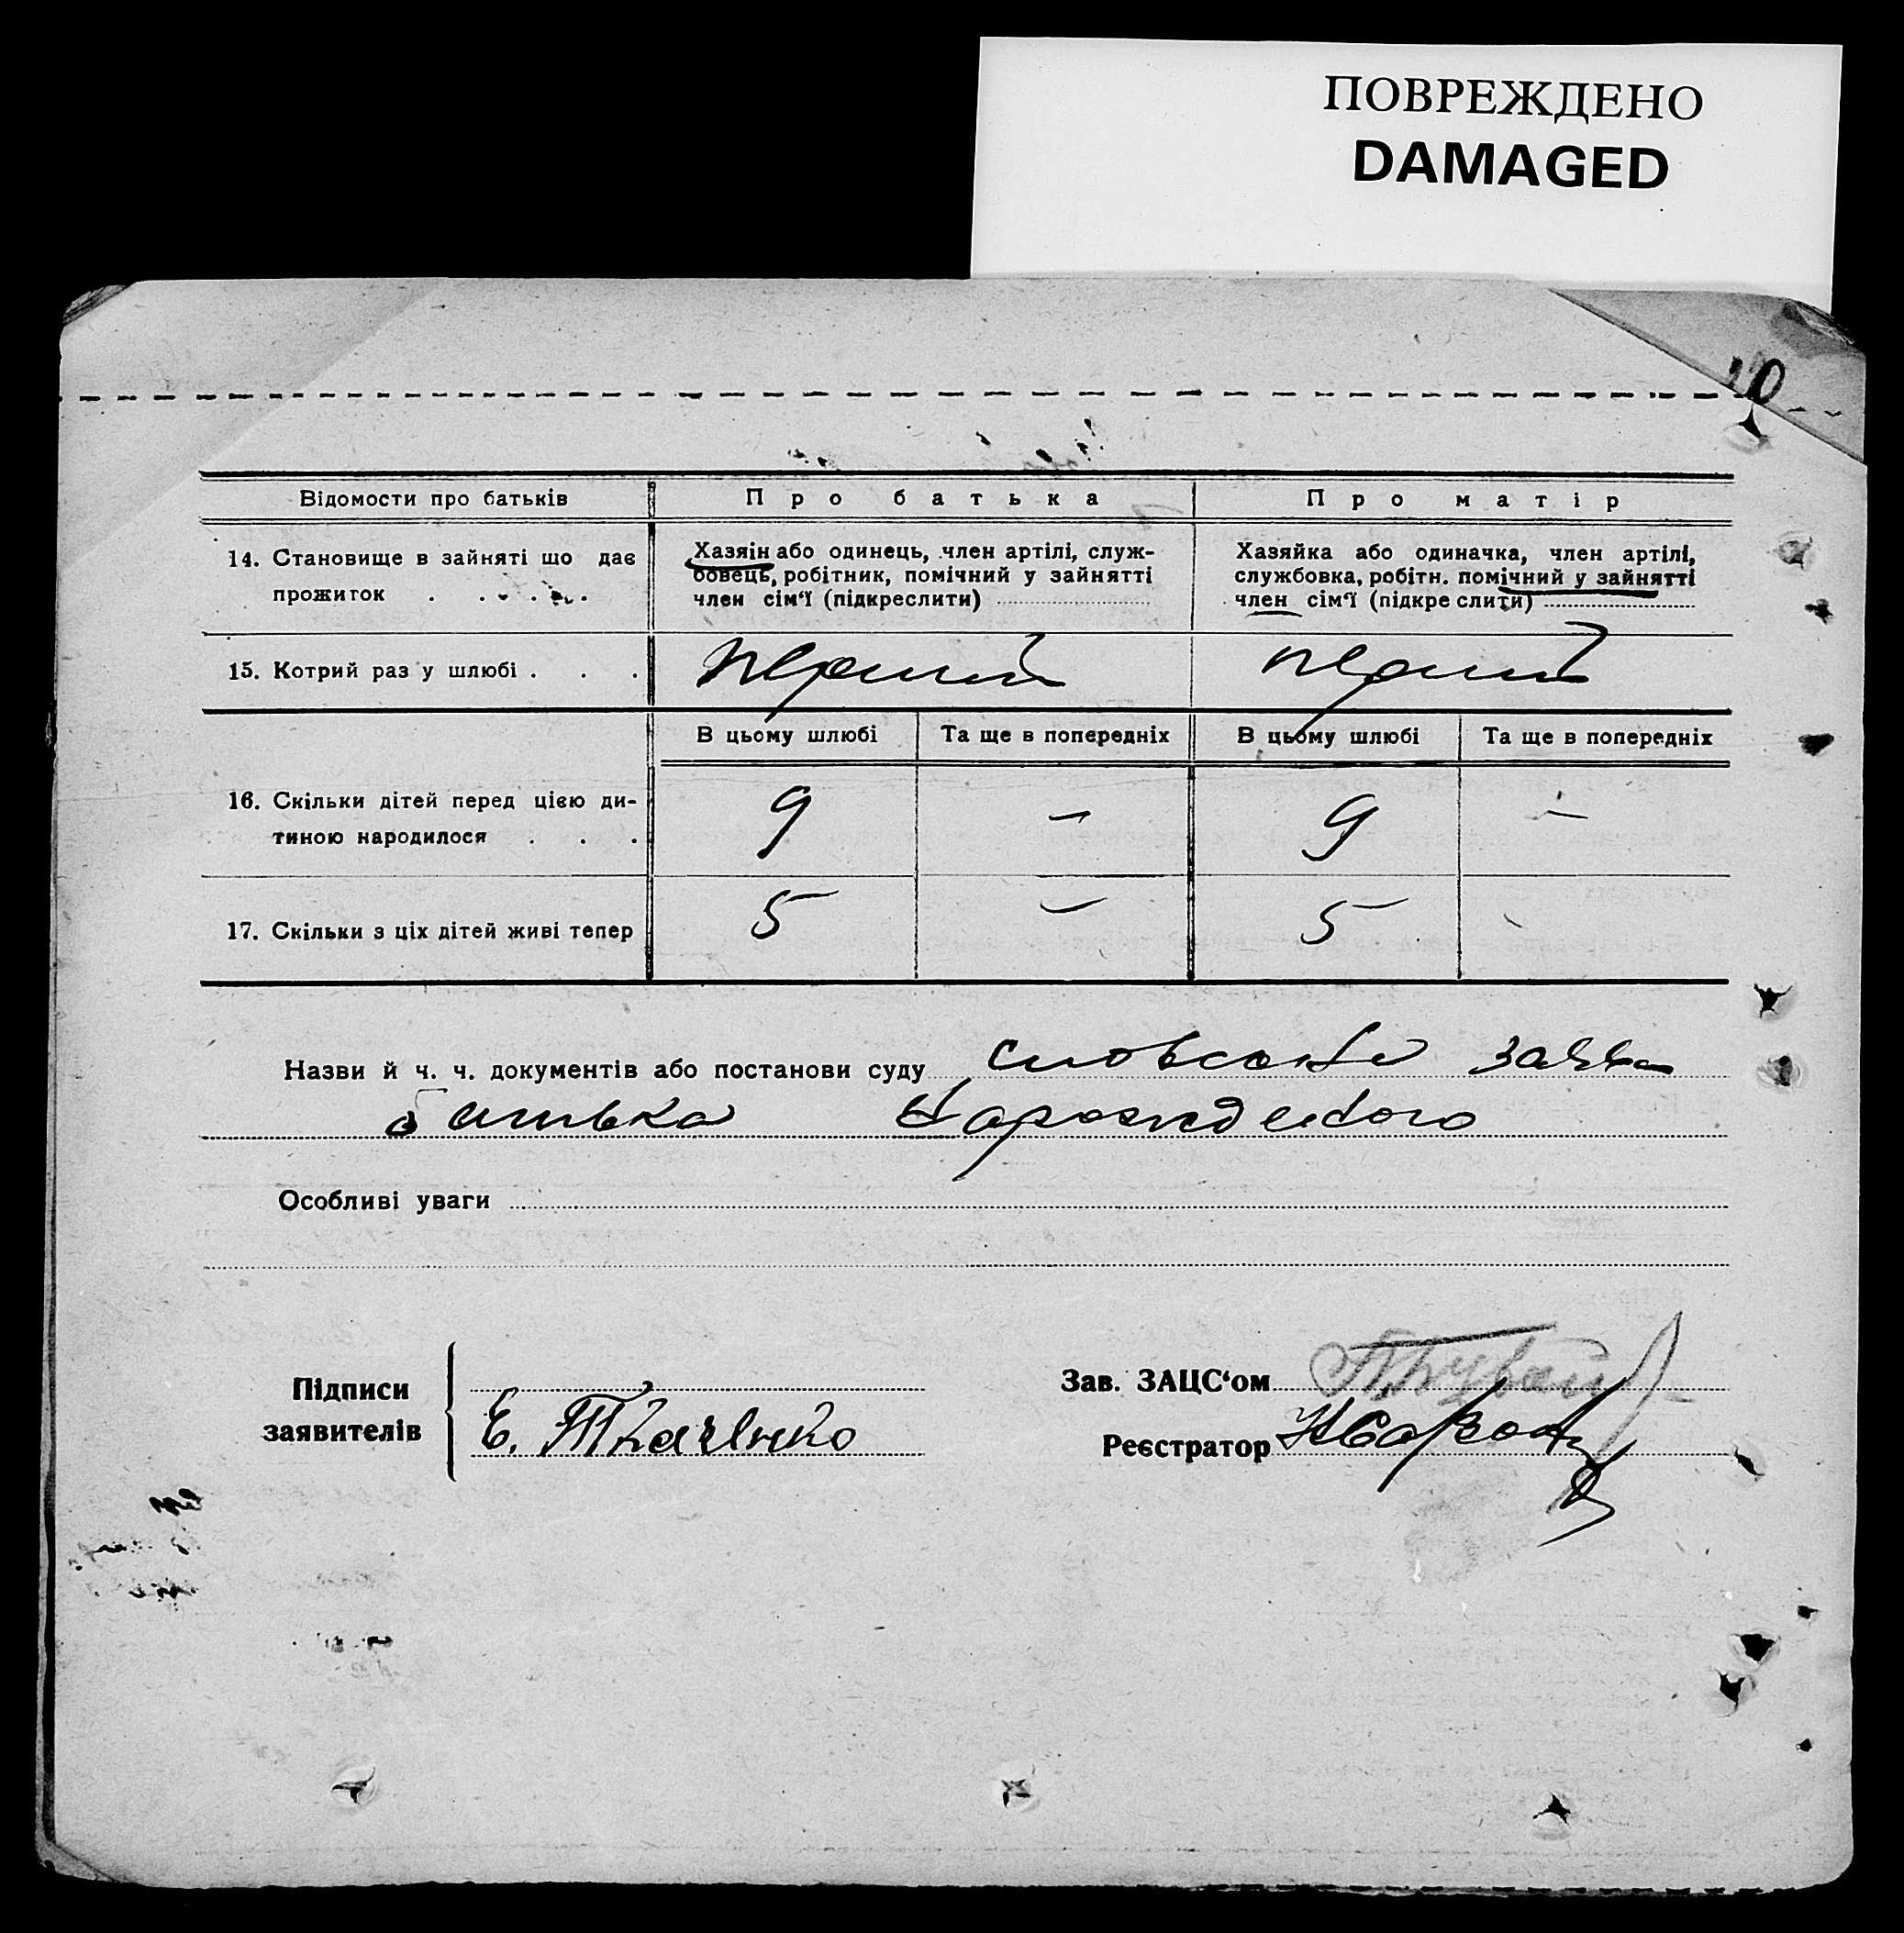 ПОВРЕЖДЕНО
DAMAGED
10
Відомости про батьків
Про батька
Про матір
14. Становище в зайняті що дає
прожиток . . . . .
Хазяін або одинець, член артілі, служ-
бовець, робітник, помічний у зайнятті
член сім‘ї (підкреслити)
Хазяйка або одиначка, член артілі,
службовка, робітн. помічний у зайнятті
член сім‘ї (підкреслити)
15. Котрий раз у шлюбі . . .
перший
перший
В цьому шлюбі
Та ще в попередніх
В цьому шлюбі
Та ще в попередніх
16. Скільки дітей перед цією ди-
тиною народилося . . .
9
—
9
—
17. Скільки з ціх дітей живі тепер
5
—
5
Назви й ч. ч. документів або постанови суду словесна заява
батька
Особливі уваги
Підписи
заявителів
Е. Ткаченко
Зав. ЗАЦС‘ом
Реєстратор